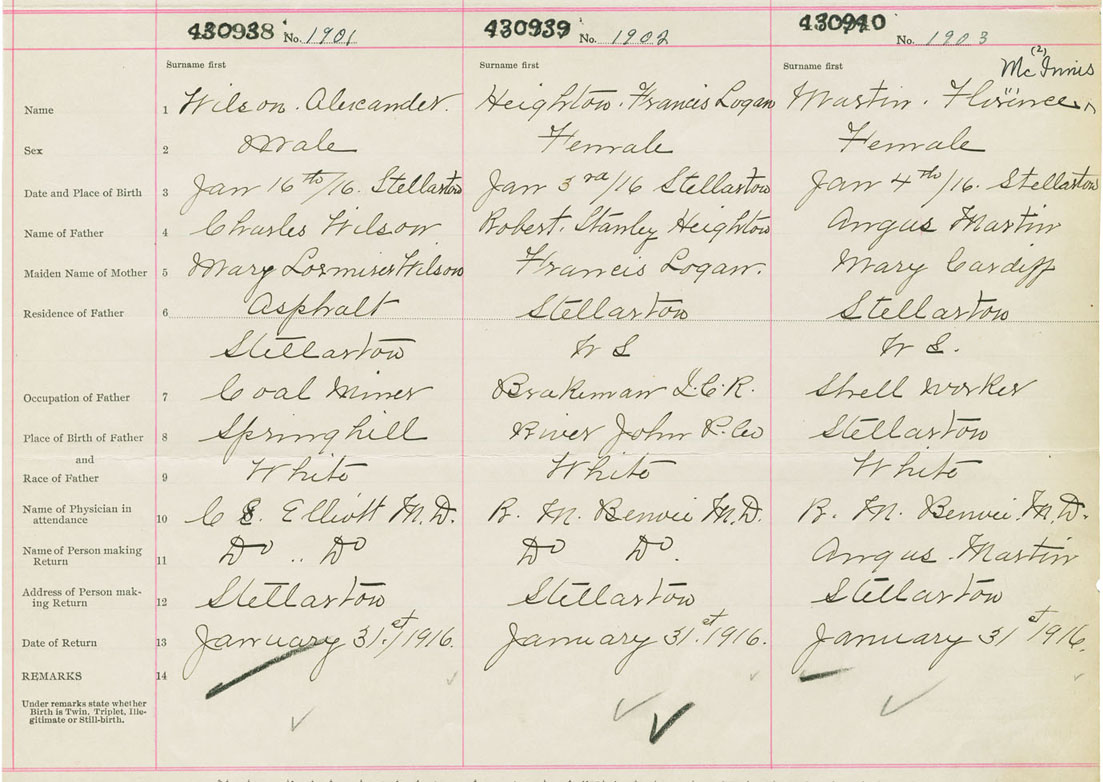 430938 No. 1901 430939 No. 1902 430940 No. 1903
Surname first Surname first Surname first (2) McInnis
Name 1 Wilson. Alexander. Heighton. Francis Logan Martin. Florence "
Sex 2 Male Female Female
Date and Place of Birth 3 Jan 16th/16. Stellarton Jan 3rd/16 Stellarton Jan 4th/16. Stellarton
Name of Father 4 Charles Wilson Robert. Stanley Heighton Angus Martin
Maiden Name of Mother 5 Mary Wilson Francis Logan. Mary Cardiff
Residence of Father 6 Asphalt Stellarton Stellarton
Stellarton N S N S.
Occupation of Father 7 Coal Miner Brakeman I.C.R. Shell worker
Place of Birth of Father 8 Springhill River John P. Co Stellarton
and
Race of Father 9 White White White
Name of Physician in
attendance 10 C S. Elliott M.D. R. M. Benvie M.D. R. M. Benvie. M.D.
Name of Person making
Return 11 Do .. Do Do Do. Angus. Martin
Address of Person mak-
ing Return 12 Stellarton Stellarton Stellarton
Date of Return 13 January 31.st/1916. January 31.st 1916. January 31 st 1916.
REMARKS 14
Under remarks state whether
Birth is Twin, Triplet, Ille-
gitimate or Still-birth.